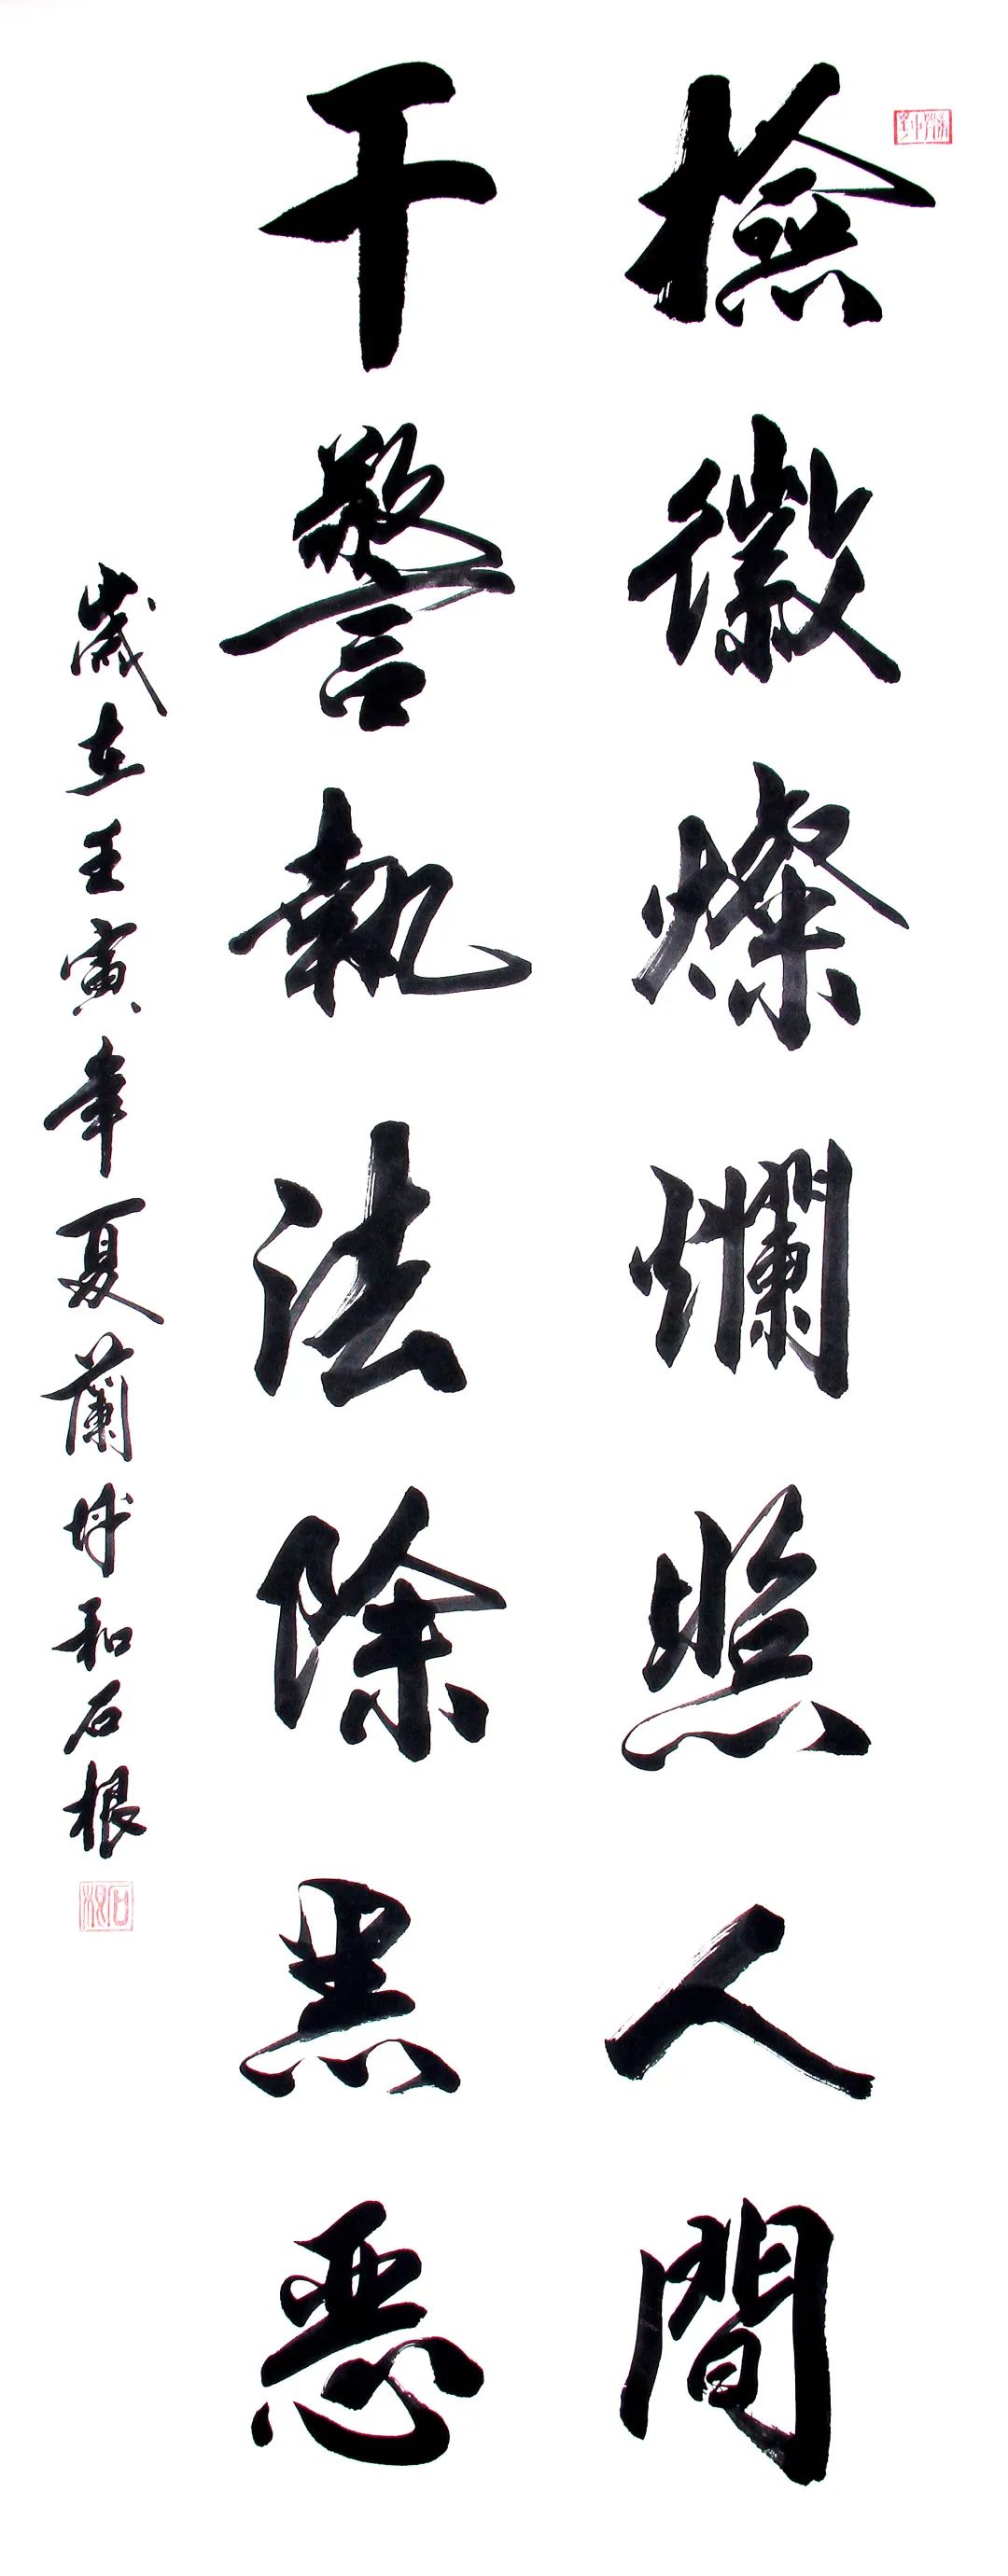 檢徽燦爛照人間
干警執法除黑惡
歲在壬寅年夏蘭城和石根